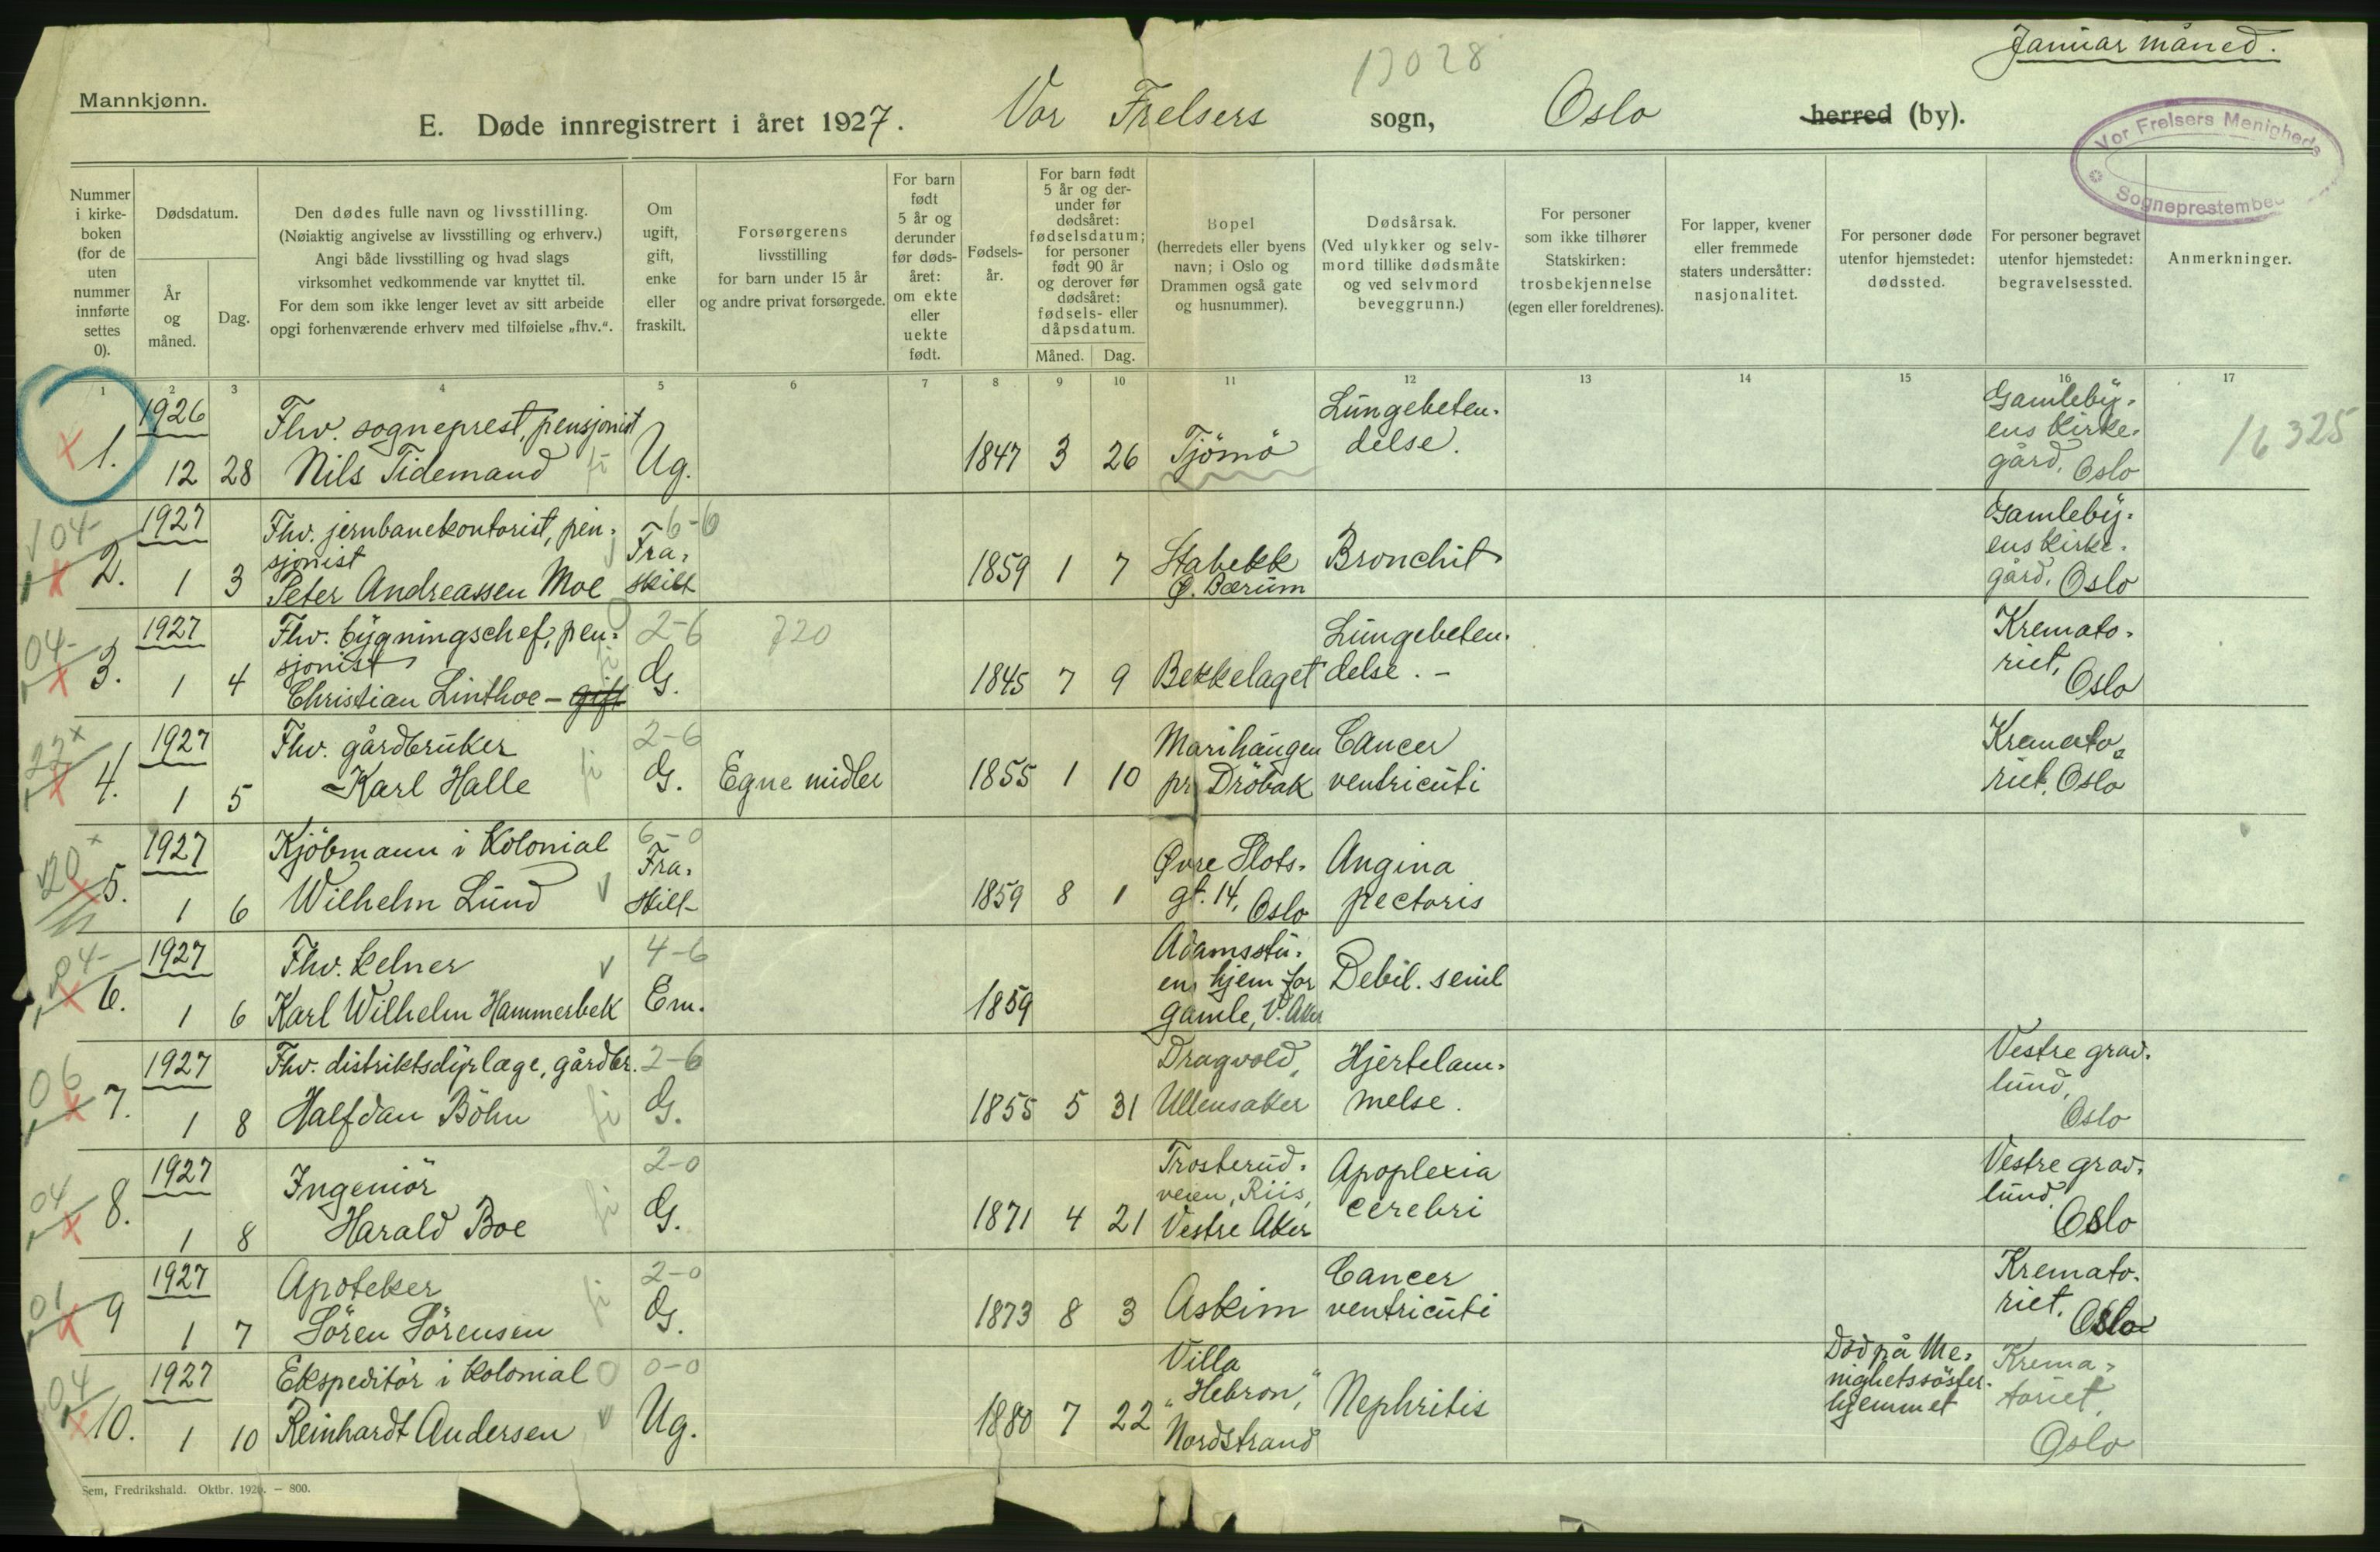 Januar måned.
17028
Mannkjønn.
E. Døde innregistrert i året 1927. Vor Frelsers sogn, Oslo herred (by).
Vor Frelsers Menigheds
Sogneprestembed
Nummer
i kirke-
boken
(for de
uten
nummer
innførte
settes
0).
Dødsdatum.
År
og
måned.
Dag.
Den dødes fulle navn og livsstilling.
(Nøiaktig angivelse av livsstilling og erhverv.)
Angi både livsstilling og hvad slags
virksomhet vedkommende var knyttet til.
For dem som ikke lenger levet av sitt arbeide
opgi forhenværende erhverv med tilføielse „fhv.“.
Om
ugift,
gift,
enke
eller
fraskilt.
Forsørgerens
livsstilling
for barn under 15 år
og andre privat forsørgede.
For barn
født
5 år og
derunder
før døds-
året:
om ekte
eller
uekte
født.
Fødsels-
år.
For barn født
5 år og der-
under før
dødsåret:
fødselsdatum;
for personer
født 90 år
og derover før
dødsåret:
fødsels- eller
dåpsdatum.
Måned. Dag.
Bopel
(herredets eller byens
navn; i Oslo og
Drammen også gate
og husnummer).
Dødsårsak.
(Ved ulykker og selv-
mord tillike dødsmåte
og ved selvmord
beveggrunn.)
For personer
som ikke tilhører
Statskirken:
trosbekjennelse
(egen eller foreldrenes).
For lapper, kvener
eller fremmede
staters undersåtter:
nasjonalitet.
For personer døde
utenfor hjemstedet:
dødssted.
For personer begravet
utenfor hjemstedet:
begravelsessted.
Anmerkninger.
1 2 3 4 5 6 7 8 9 10 11 12 13 14 15 16 17
1.
1926
12 28
Fhv. sogneprest, pensjonist
Nils Tidemand
Ug.
1847 3 26
Tjömö
Lungebeten-
delse.
Gamleby-
ens kirke-
gård, Oslo
16325
04-
2.
1927
1 3
Fhv. jernbanekontorist, pen-
sjonist
Peter Andreassen Moe
6-6
Fra-
skilt
1859 1 7
Stabekk
Ø. Bærum
Bronchit
Gamleby-
ens kirke-
gård, Oslo
04-
3.
1927
1 4
Fhv. bygningschef, pen-
sjonist
Christian Linthoe - gift
2-6
G.
720
1845 7 9
Bekkelaget
Lungebeten-
delse. -
Kremato-
riet,
Oslo
22x
4.
1927
1 5
Fhv. gårdbruker
Karl Halle
2-6
G.
Egne midler
1855 1 10
Marihaugen
pr Dröbak
Cancer
ventricúti
Kremato-
riet, Oslo
20x
5.
1927
1 6
Kjöbmann i kolonial
Wilhelm Lund
6-0
Fra-
skilt
1859 8 1
Øvre Slots-
gt. 14, Oslo
Angina
pectoris
04-
6.
1927
1 6
Fhv. kelner
Karl Wilhelm Hammerbek
4-6
Em.
1859
Adamsstu-
en, hjem for
gamle, V. Aker
Debil. senil
06
7.
1927
1 8
Fhv. distriktsdyrlæge, gårdbr.
Halfdan Böhn
2-6
G.
1855 5 31
Dragvold,
Ullensaker
Hjertelam-
melse.
Vestre grav-
lund,
Oslo
04
8.
1927
1 8
Ingeniör
Harald Boe
2-0
G.
1871 4 21
Trosterud-
veien, Riis,
Vestre Aker
Apoplexia
cerebri
Vestre grav-
lund,
Oslo
01
9
1927
1 7
Apoteker
Sören Sörensen
2-0
G.
1873 8 3
Askim
Cancer
ventricúti
Kremato-
riet,
Oslo
04
10.
1927
1 10
Ekspeditör i kolonial
Reinhardt Andersen
0-0
Ug.
1880 7 22
Villa
„Hebron“,
Nordstrand
Nephritis
Död på Me-
nighetssöster-
hjemmet
Krema-
toriet,
Oslo
Sem, Fredrikshald. Oktbr. 1926. — 800.